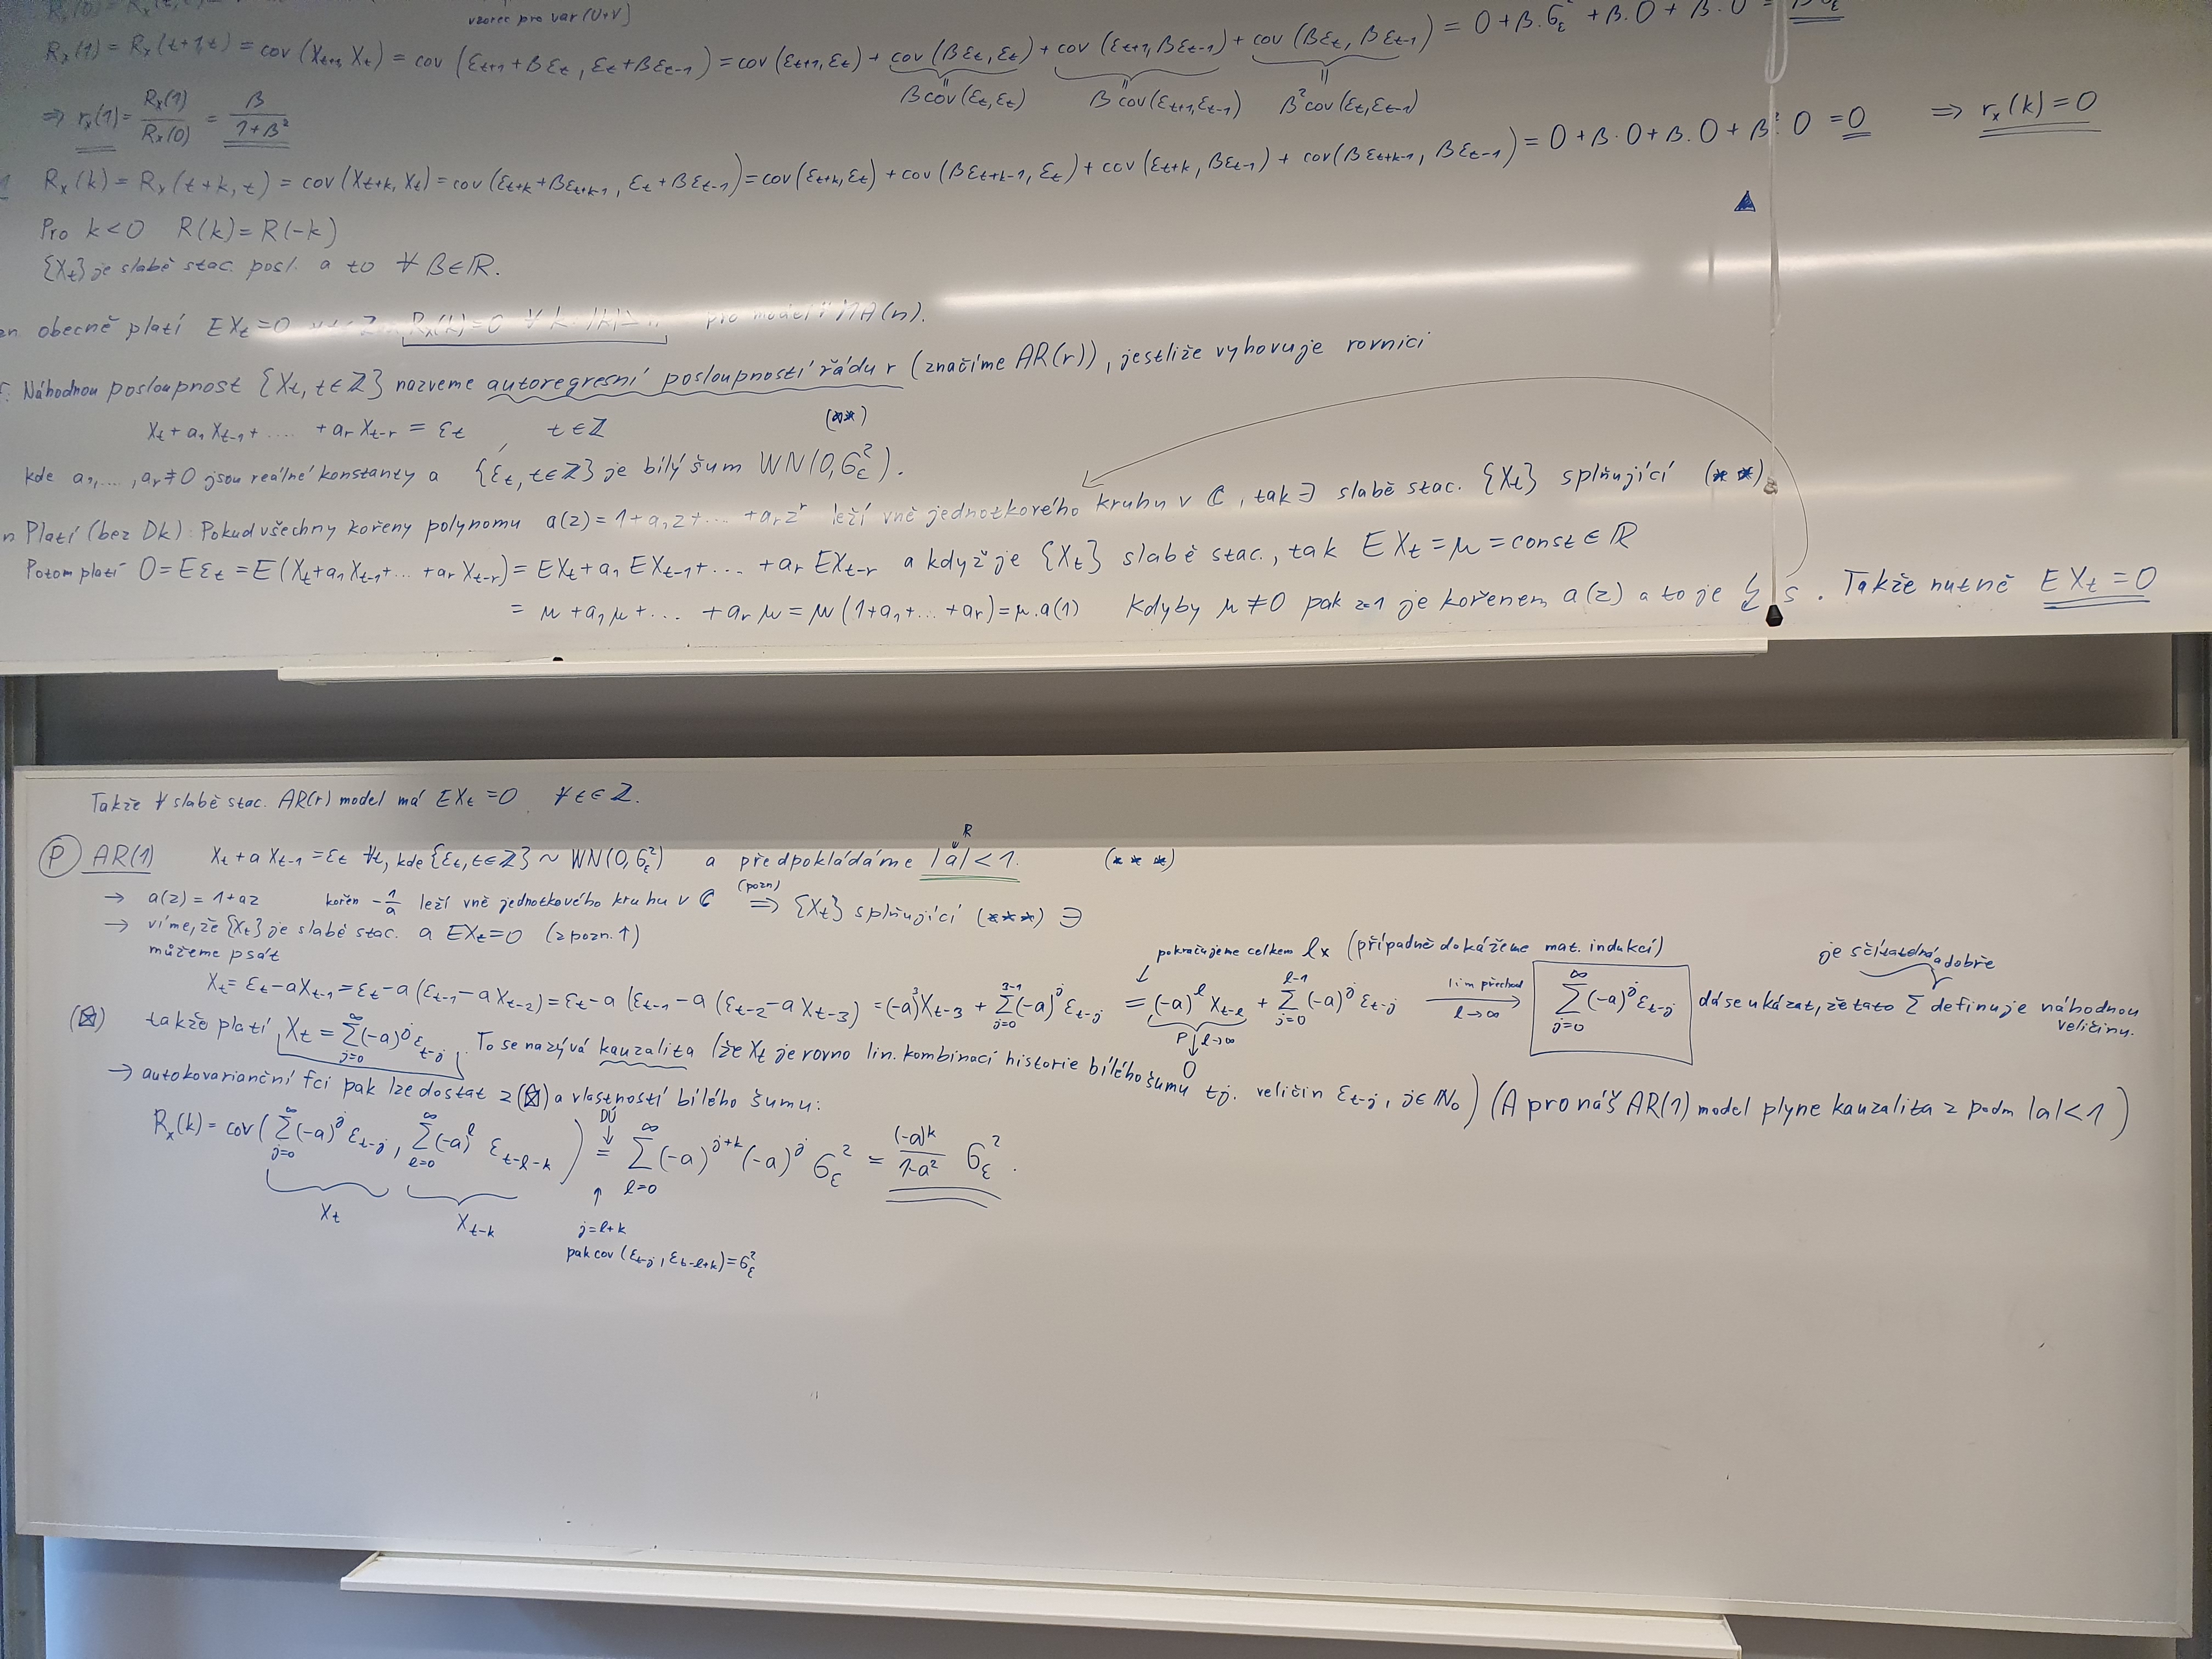 vzorec pro var(U+V)]
R_x(1) = R_x(t+1,t) = cov(X_{t+1}, X_t) = cov(ε_{t+1}+βε_t, ε_t+βε_{t-1}) = cov(ε_{t+1},ε_t) + cov(βε_t,ε_t) + cov(ε_{t+1},βε_{t-1}) + cov(βε_t, βε_{t-1}) = 0+β.σ_ε^2 +β.0+ β.0 =
βcov(ε_t,ε_t) βcov(ε_{t+1},ε_{t-1}) β^2cov(ε_t,ε_{t-1})
⇒ r_x(1) = R_x(1)/R_x(0) = β/(1+β^2)
R_x(k) = R_x(t+k,t) = cov(X_{t+k}, X_t) = cov(ε_{t+k}+βε_{t+k-1}, ε_t+βε_{t-1}) = cov(ε_{t+k},ε_t) + cov(βε_{t+k-1}, ε_t) + cov(ε_{t+k}, βε_{t-1}) + cov(βε_{t+k-1}, βε_{t-1}) = 0+β.0+β.0+β^2.0 = 0 ⇒ r_x(k) = 0
Pro k<0 R(k) = R(-k)
{X_t} je slabě stac. posl. a to ∀ β∈ℝ.
obecně platí EX_t=0 R_x(k)=0 ∀ k: pro model MA(n).
Náhodnou posloupnost {X_t, t∈ℤ} nazveme autoregresní posloupností řádu r (značíme AR(r)), jestliže vyhovuje rovnici
X_t + a_1 X_{t-1} + .... + a_r X_{t-r} = ε_t , t∈ℤ (**)
kde a_1,...,a_r≠0 jsou reálné konstanty a {ε_t, t∈ℤ} je bílý šum WN(0,σ_ε^2).
Platí (bez Dk): Pokud všechny kořeny polynomu a(z) = 1+a_1z+... +a_rz^r leží vně jednotkového kruhu v ℂ, tak ∃ slabě stac. {X_t} splňující (**)
Potom platí 0=Eε_t = E(X_t+a_1X_{t-1}+... +a_rX_{t-r}) = EX_t+a_1 EX_{t-1}+... +a_r EX_{t-r} a když je {X_t} slabě stac., tak EX_t = μ = const ∈ ℝ
= μ+a_1μ+... +a_rμ = μ(1+a_1+...+a_r) = μ.a(1) Kdyby μ≠0 pak z=1 je kořenem a(z) a to je ↯ s . Takže nutně EX_t = 0
Takže ∀ slabě stac. AR(r) model má EX_t = 0 ∀t∈ℤ.
(P) AR(1) X_t + a X_{t-1} = ε_t ∀t, kde {ε_t, t∈ℤ} ~ WN(0,σ_ε^2) a předpokládáme |a|<1. (***)
R
→ a(z) = 1+az kořen -1/a leží vně jednotkového kruhu v ℂ (pozn) ⇒ {X_t} splňující (***) ∃
→ víme, že {X_t} je slabě stac. a EX_t=0 (z pozn.↑)
můžeme psát
pokračujeme celkem l× (případně dokážeme mat. indukcí)
je sčítatelná a dobře
X_t = ε_t - aX_{t-1} = ε_t - a(ε_{t-1} - aX_{t-2}) = ε_t - a(ε_{t-1} - a(ε_{t-2} - aX_{t-3})) = (-a)^3X_{t-3} + ∑_{j=0}^{3-1}(-a)^jε_{t-j} = (-a)^l X_{t-l} + ∑_{j=0}^{l-1}(-a)^j ε_{t-j} lim přechod l→∞ ∑_{j=0}^{∞}(-a)^jε_{t-j} dá se ukázat, že tato ∑ definuje náhodnou veličinu.
P↓ l→∞
0
(⊠) takže platí X_t = ∑_{j=0}^{∞}(-a)^jε_{t-j}. To se nazývá kauzalita (že X_t je rovno lin. kombinací historie bílého šumu tj. veličin ε_{t-j}, j∈ℕ_0) (A pro náš AR(1) model plyne kauzalita z podm |a|<1)
→ autokovarianční fci pak lze dostat z (⊠) a vlastností bílého šumu:
DÚ
R_x(k) = cov(∑_{j=0}^{∞}(-a)^jε_{t-j}, ∑_{l=0}^{∞}(-a)^l ε_{t-l-k}) = ∑_{l=0}^{∞}(-a)^{j+k}(-a)^j σ_ε^2 = (-a)^k/(1-a^2) σ_ε^2.
X_t X_{t-k}
j=l+k
pak cov(ε_{t-j}, ε_{t-l+k}) = σ_ε^2